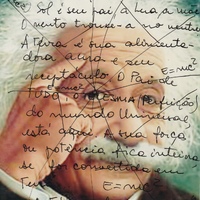 O Sol é seu pai, a Lua a mãe
O vento trouxe-a no ventre
A Terra é sua alimenta-
dora a ira e seu
receptáculo. O Pai de E=mc²
E=mc²
Tudo
do mundo Universal
está aqui. A sua força
ou potência fica inteira
se for convertida em
Terra E=m